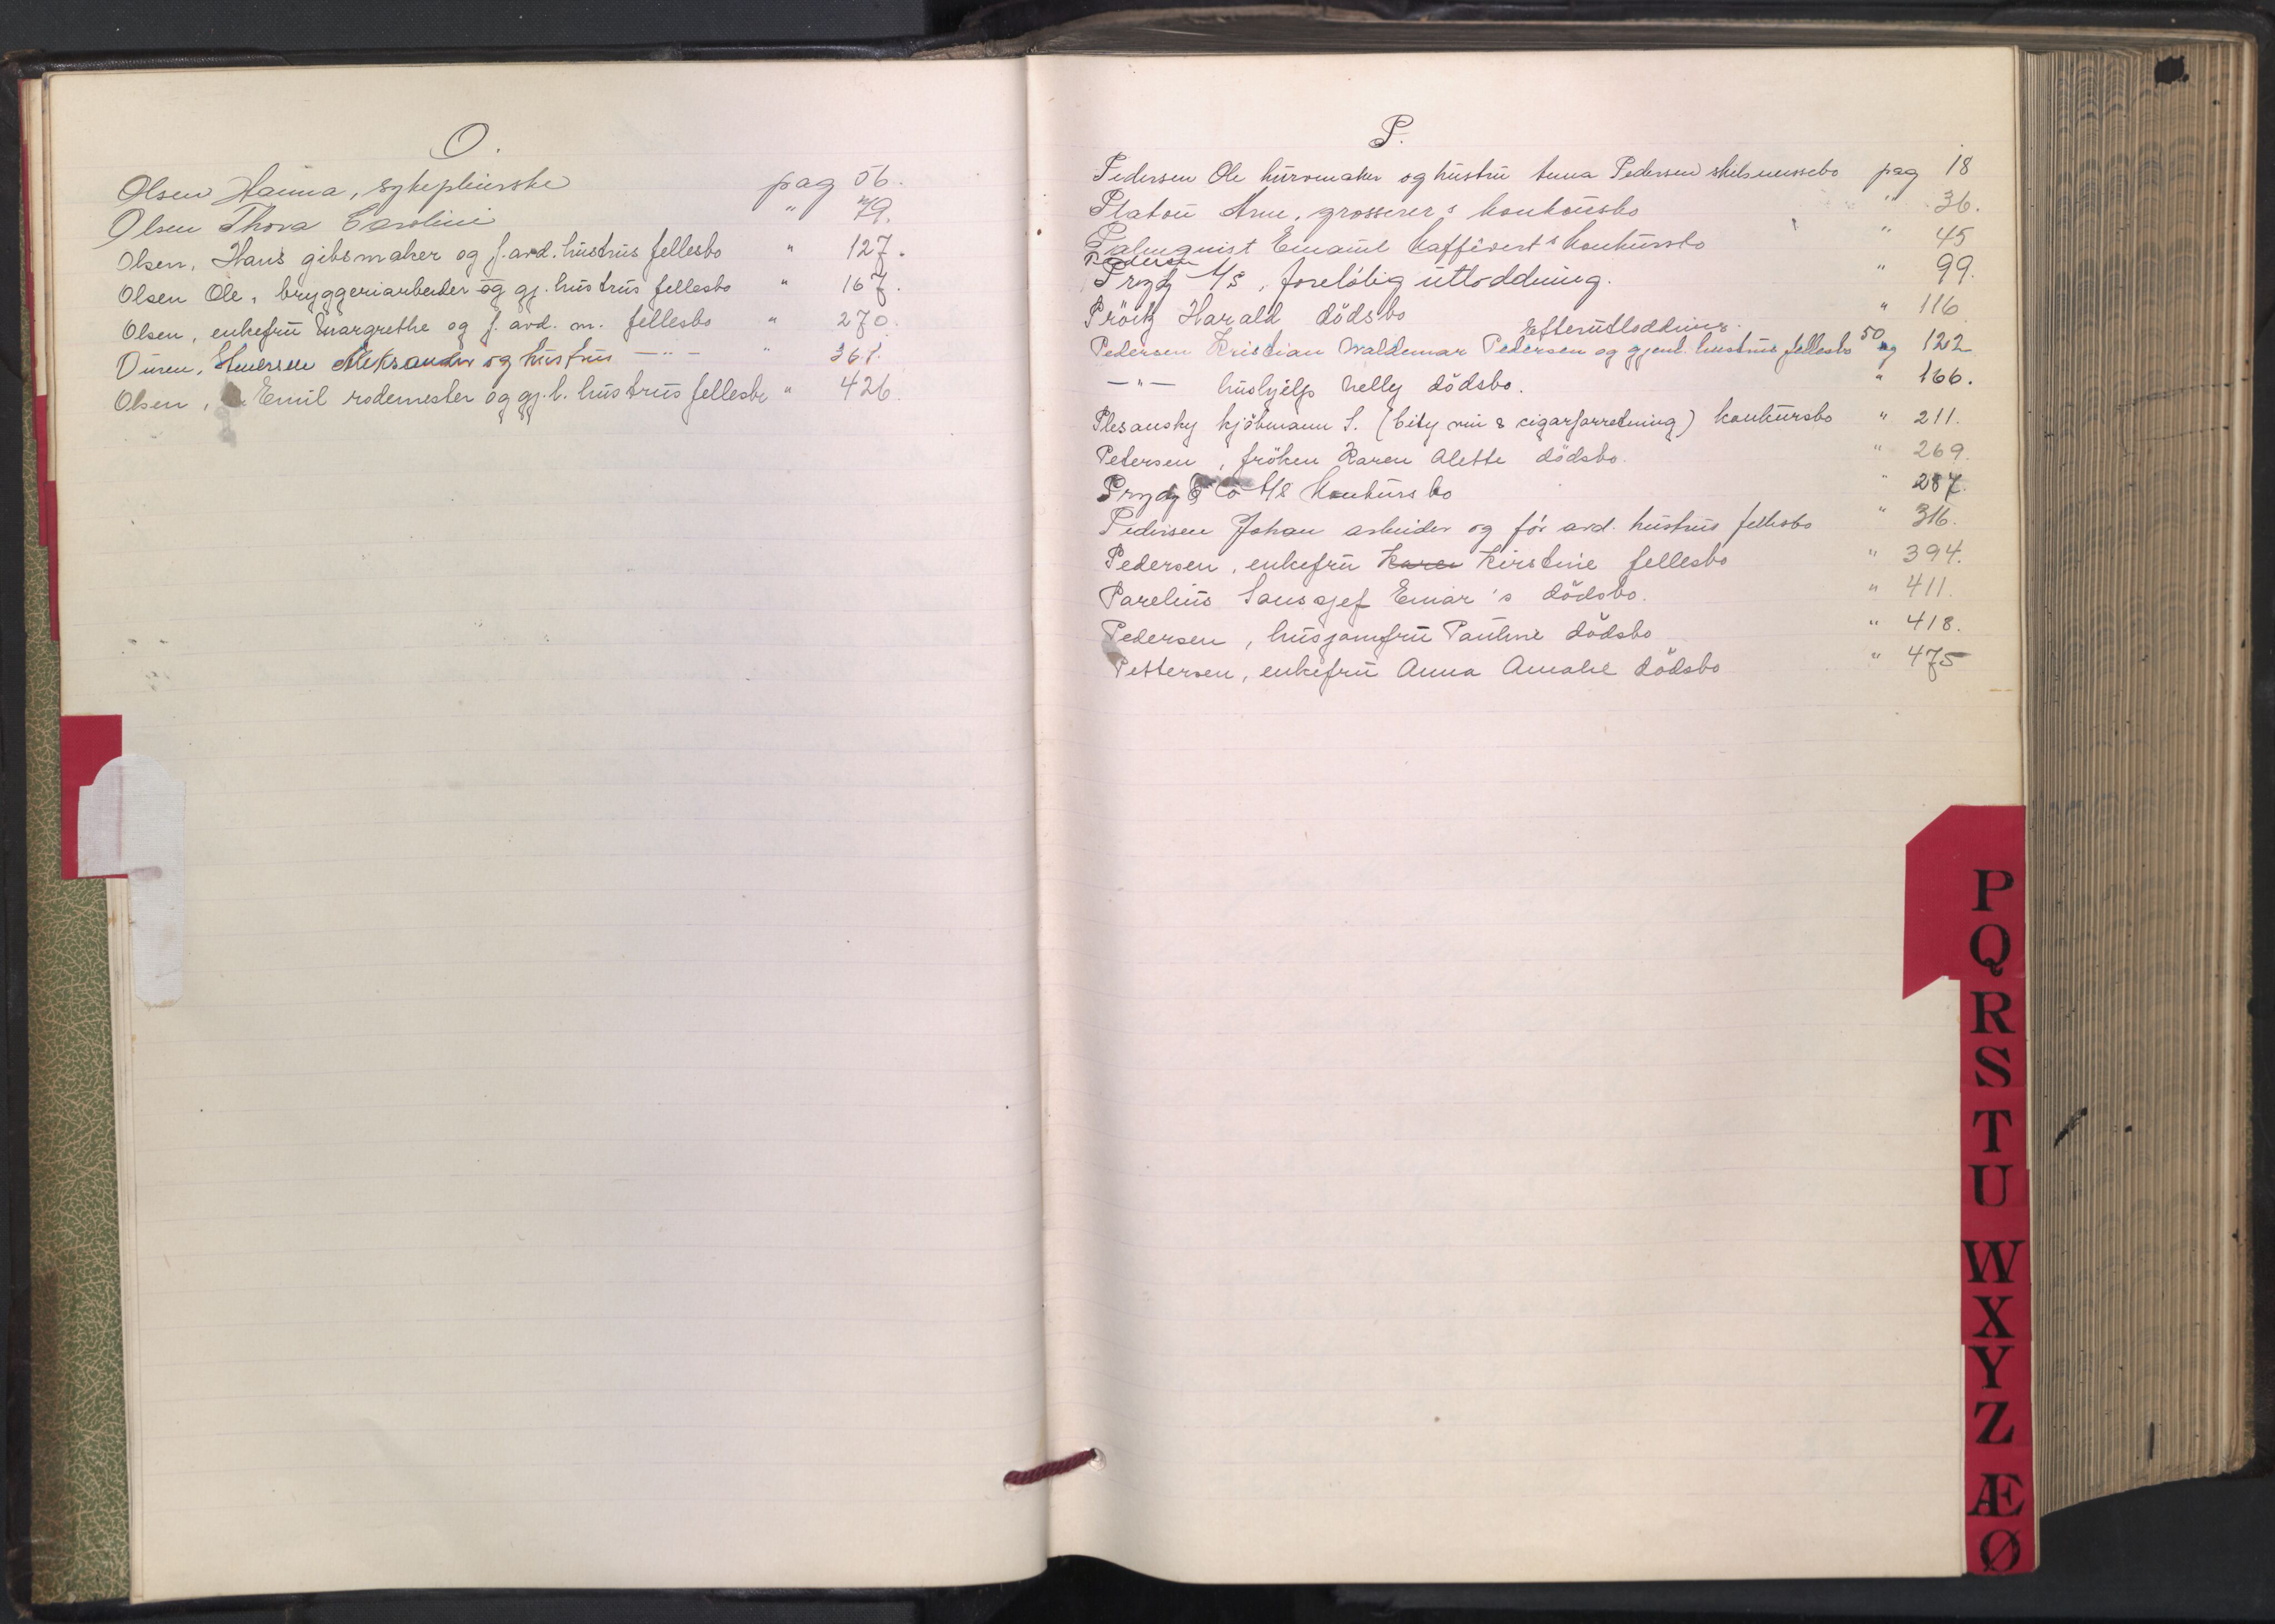 O.
Olsen Hanna, sykepleierske pag 56.
Olsen Thora Caroline " 79.
Olsen, Hans gibsmaker og f. avd. hustrus fellesbo " 127.
Olsen Ole, bryggeriarbeider og gj. hustrus fellesbo " 167.
Olsen, enkefru Margrethe og f. avd. m. fellesbo " 270.
Ouren, Aleksander og hustrus — " — " 368.
Olsen, Emil rodemester og gj.l. hustrus fellesbo " 426.
P.
Pedersen Ole kurvmaker og hustru Anna Pedersen skilsmissebo pag 18
Platou Arne, grosserer s konkursbo " 36.
Palmquist Emanuel kaffévert s konkursbo " 45
Pedersen
Prydz A/S, foreløbig utloddning. " 99.
Pröitz Harald dödsbo " 116
Efterutloddning.
Pedersen Kristian Waldemar Pedersen og gjenl. hustrus fellesbo 50 og 122
— " — hushjelp Nelly dödsbo. " 166.
Plesansky kjöbmann S. (City vin & cigarforretning) konkursbo " 211.
Petersen, fröken Karen Alette dödsbo. " 269.
Prydz & Co A/S konkursbo " 287.
Pedersen Johan arbeider og før avd. hustrus fellesbo " 316.
Pedersen, enkefru Karen Kirstine fellesbo " 394.
Parelius Einar's dödsbo. " 411.
Pedersen, husjomfru Pauline dödsbo " 418.
Pettersen, enkefru Anna Amalie dödsbo " 475
P
Q
R
S
T
U
W
X
Y
Z
Æ
Ø